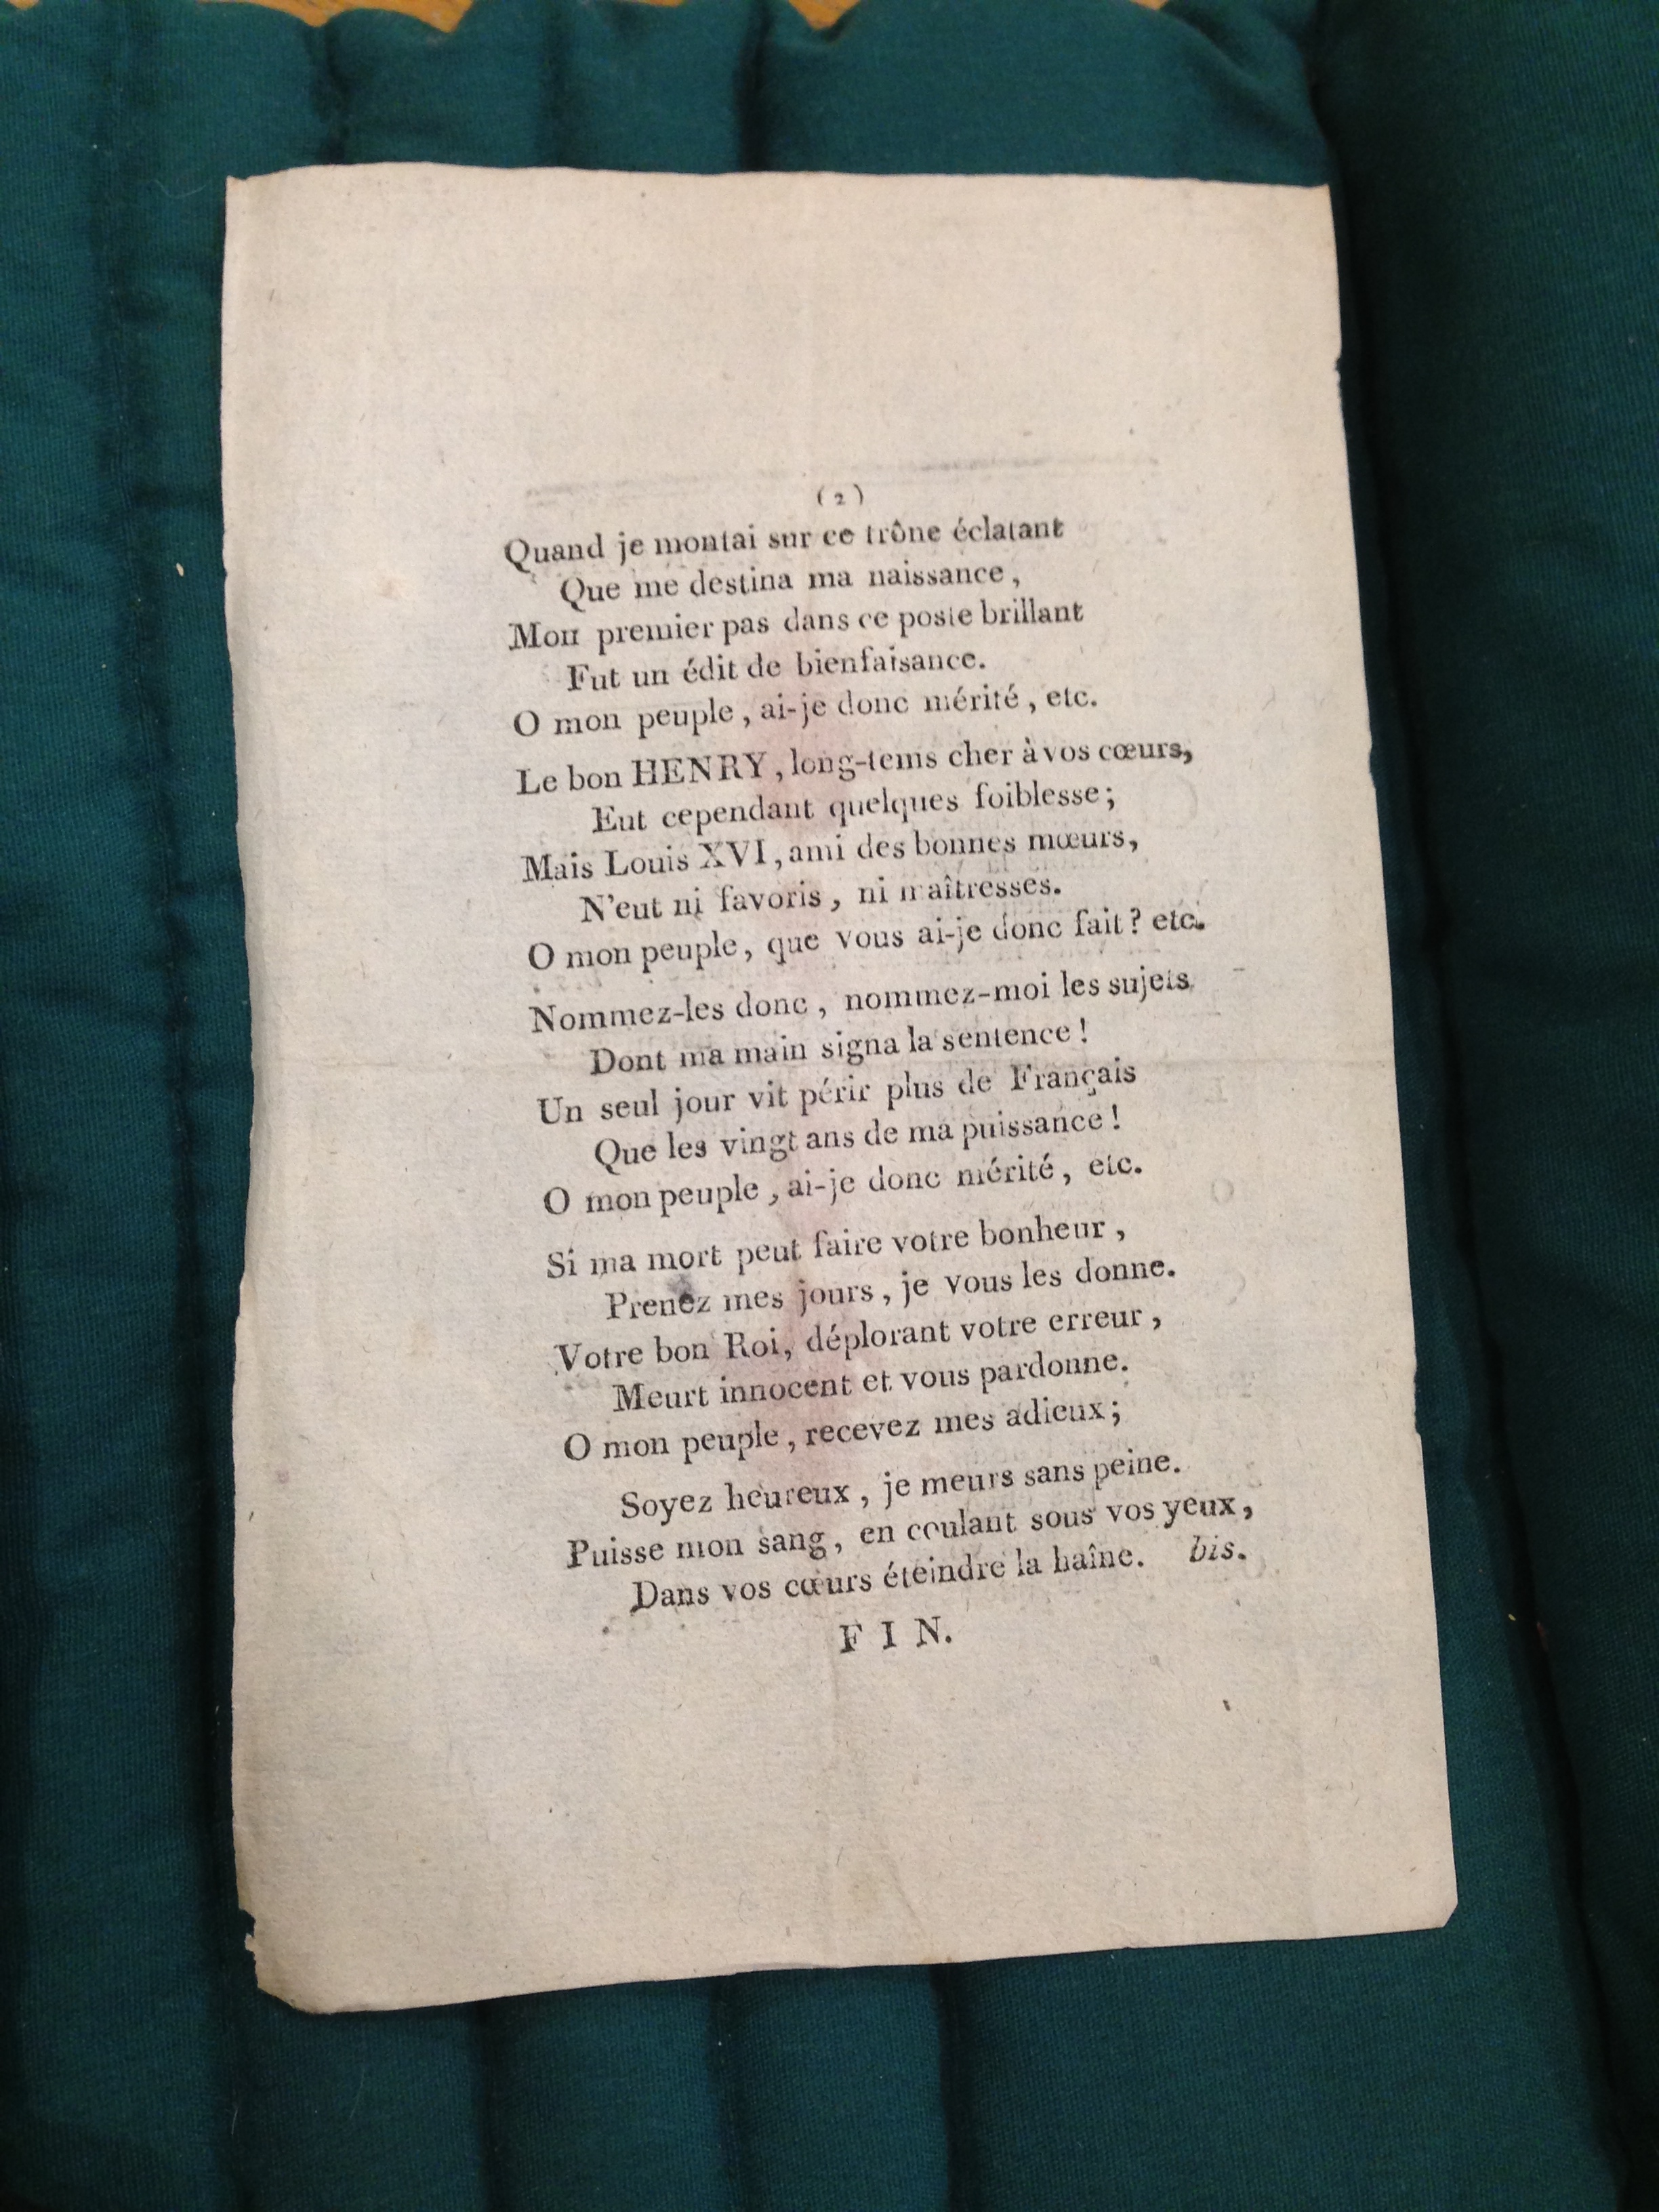 (2)
Quand je montai sur ce trône éclatant
Que me destina ma naissance,
Mon premier pas dans ce poste brillant
Fut un édit de bienfaisance.
O mon peuple, ai-je donc mérité, etc.
Le bon HENRY, long-tems cher à vos cœurs,
Eut cependant quelques foiblesse;
Mais Louis XVI, ami des bonnes mœurs,
N'eut ni favoris, ni maîtresses.
O mon peuple, que vous ai-je donc fait? etc.
Nommez-les donc, nommez-moi les sujets
Dont ma main signa la sentence!
Un seul jour vit périr plus de Français
Que les vingt ans de ma puissance!
O mon peuple, ai-je donc mérité, etc.
Si ma mort peut faire votre bonheur,
Prenez mes jours, je vous les donne.
Votre bon Roi, déplorant votre erreur,
Meurt innocent et vous pardonne.
O mon peuple, recevez mes adieux;
Soyez heureux, je meurs sans peine.
Puisse mon sang, en coulant sous vos yeux,
Dans vos cœurs éteindre la haîne. bis.
FIN.